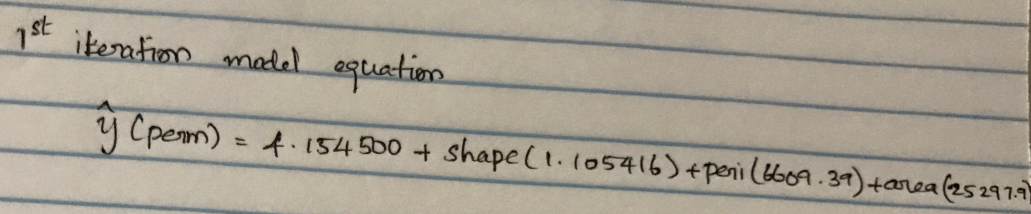 1st iteration model equation
ŷ (perm) = 4.154500 + shape(1.105416) + peri(6609.39) + area(25297.9)